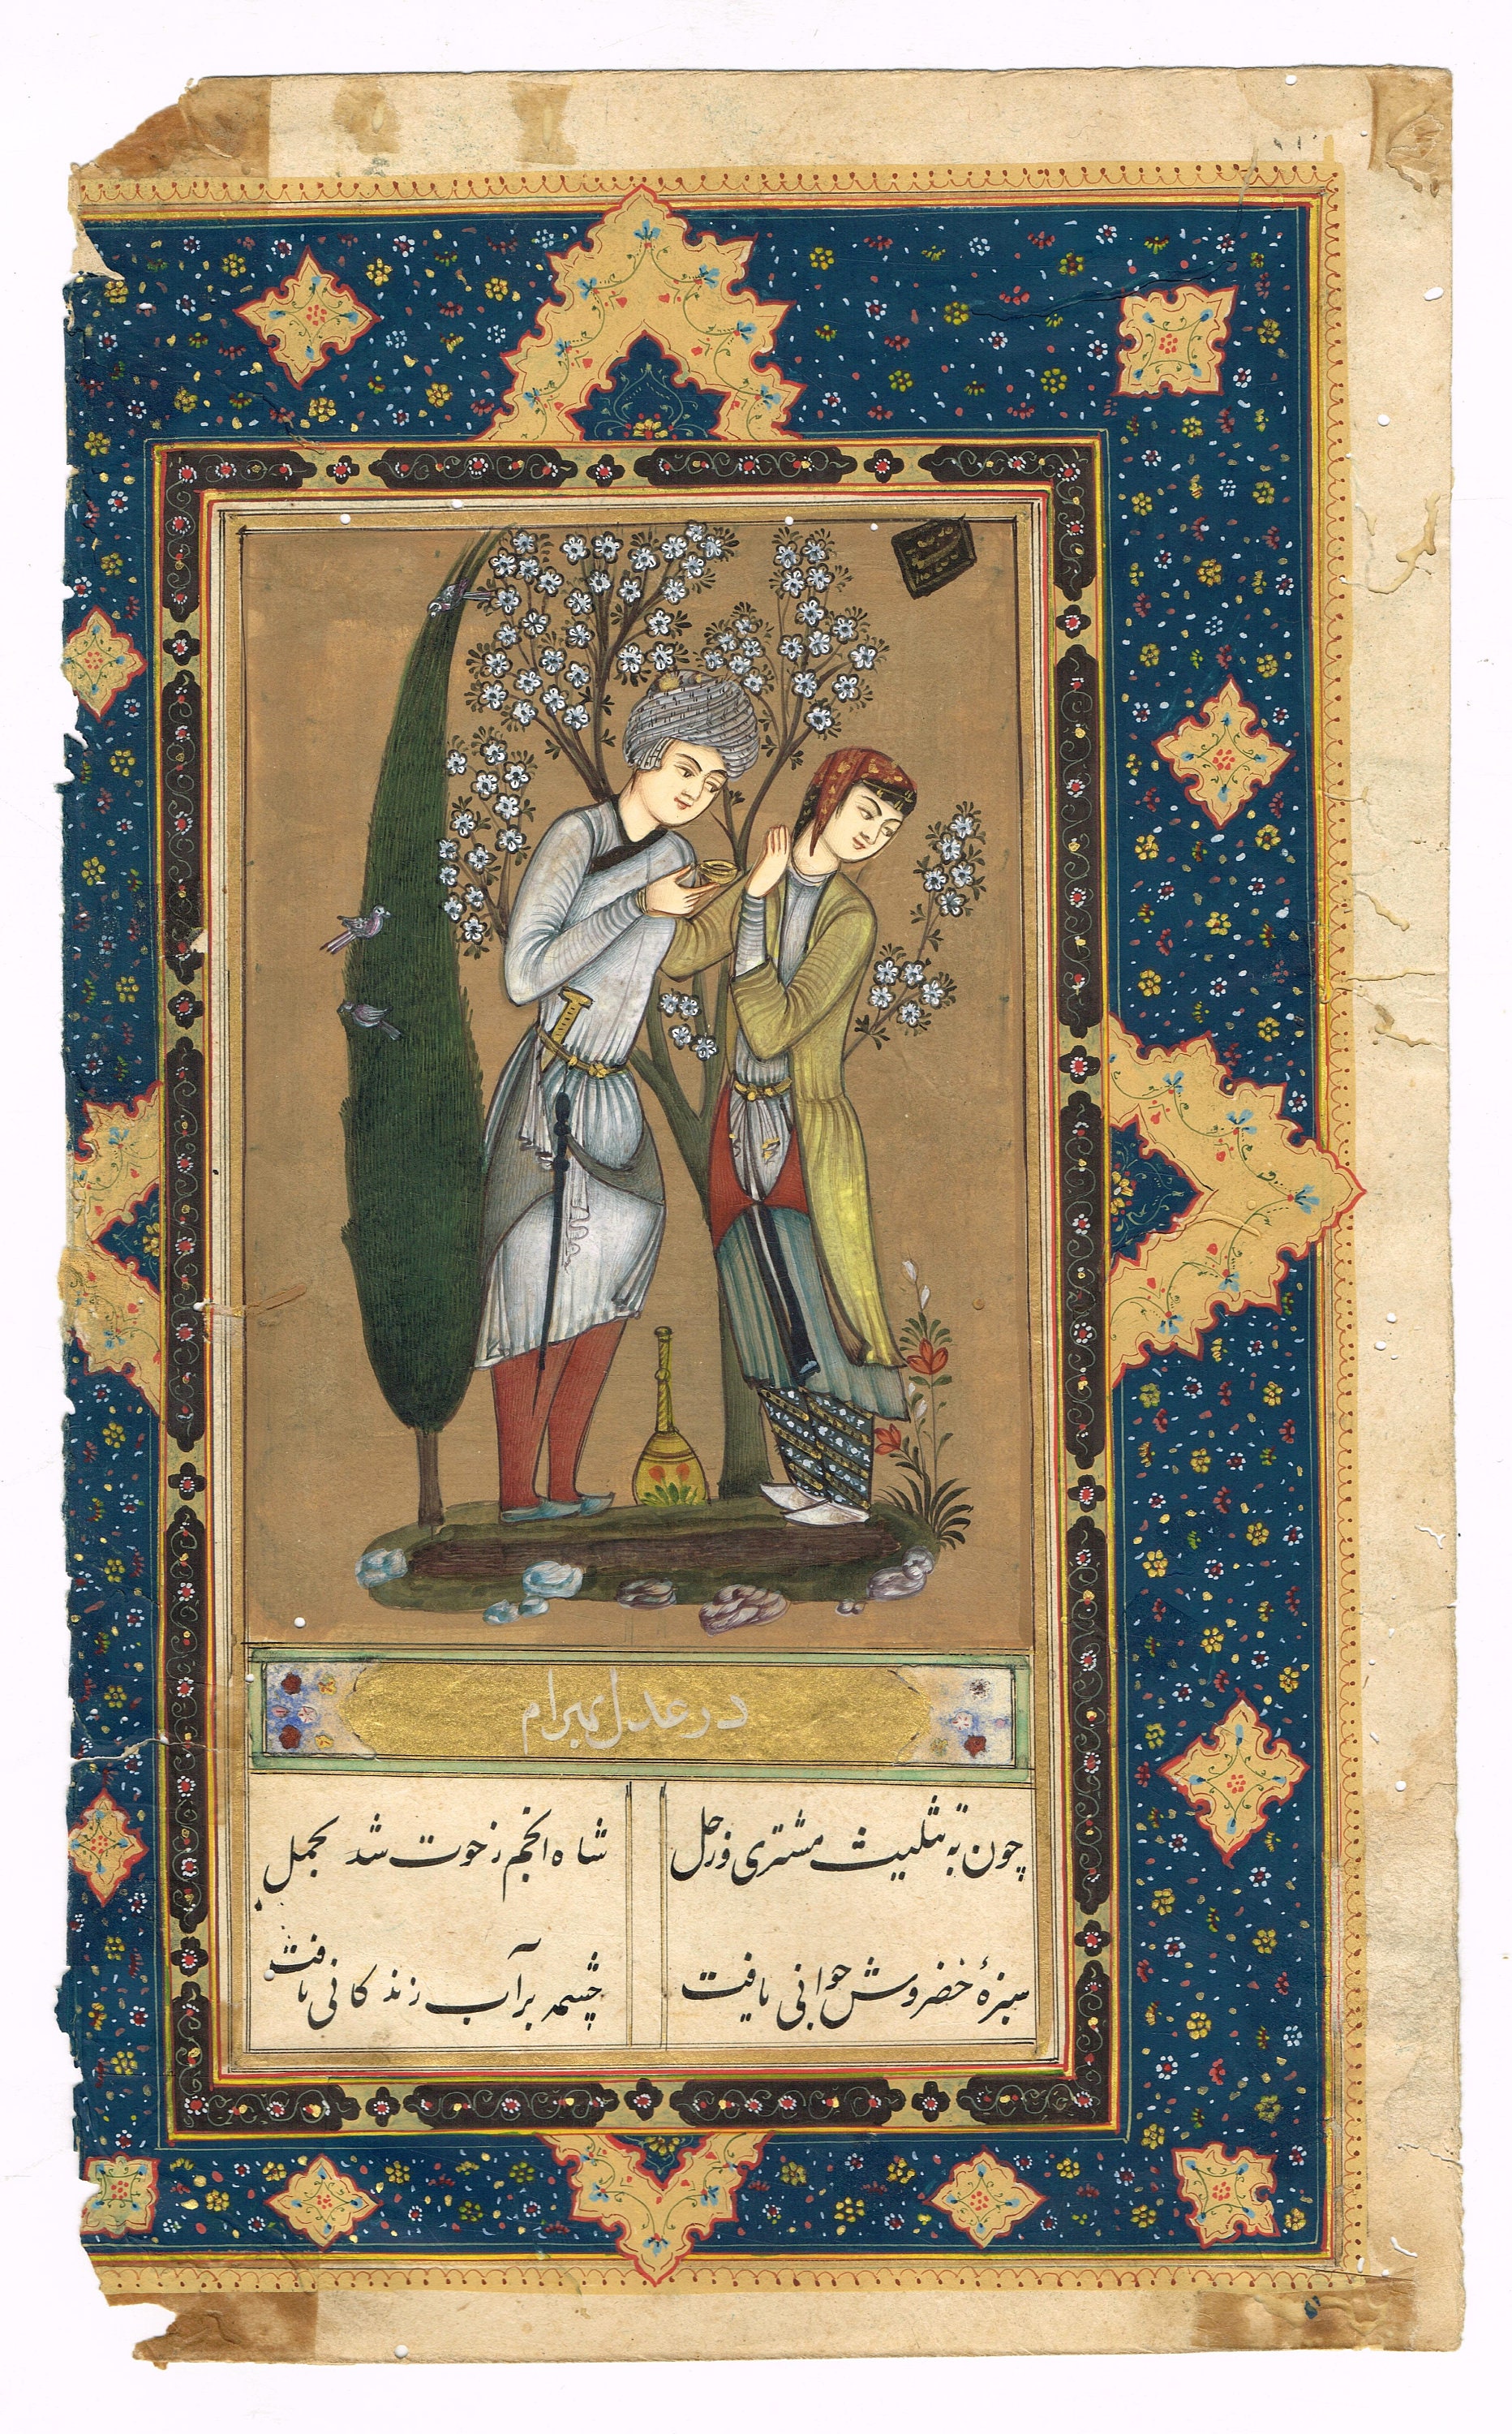 در عدل بهرام
چون به تثلیث مشتری و زحل
شاه انجم ز حوت شد بحمل
سبزهٔ خضروش جوانی یافت
چشمه بر آب زندگانی یافت